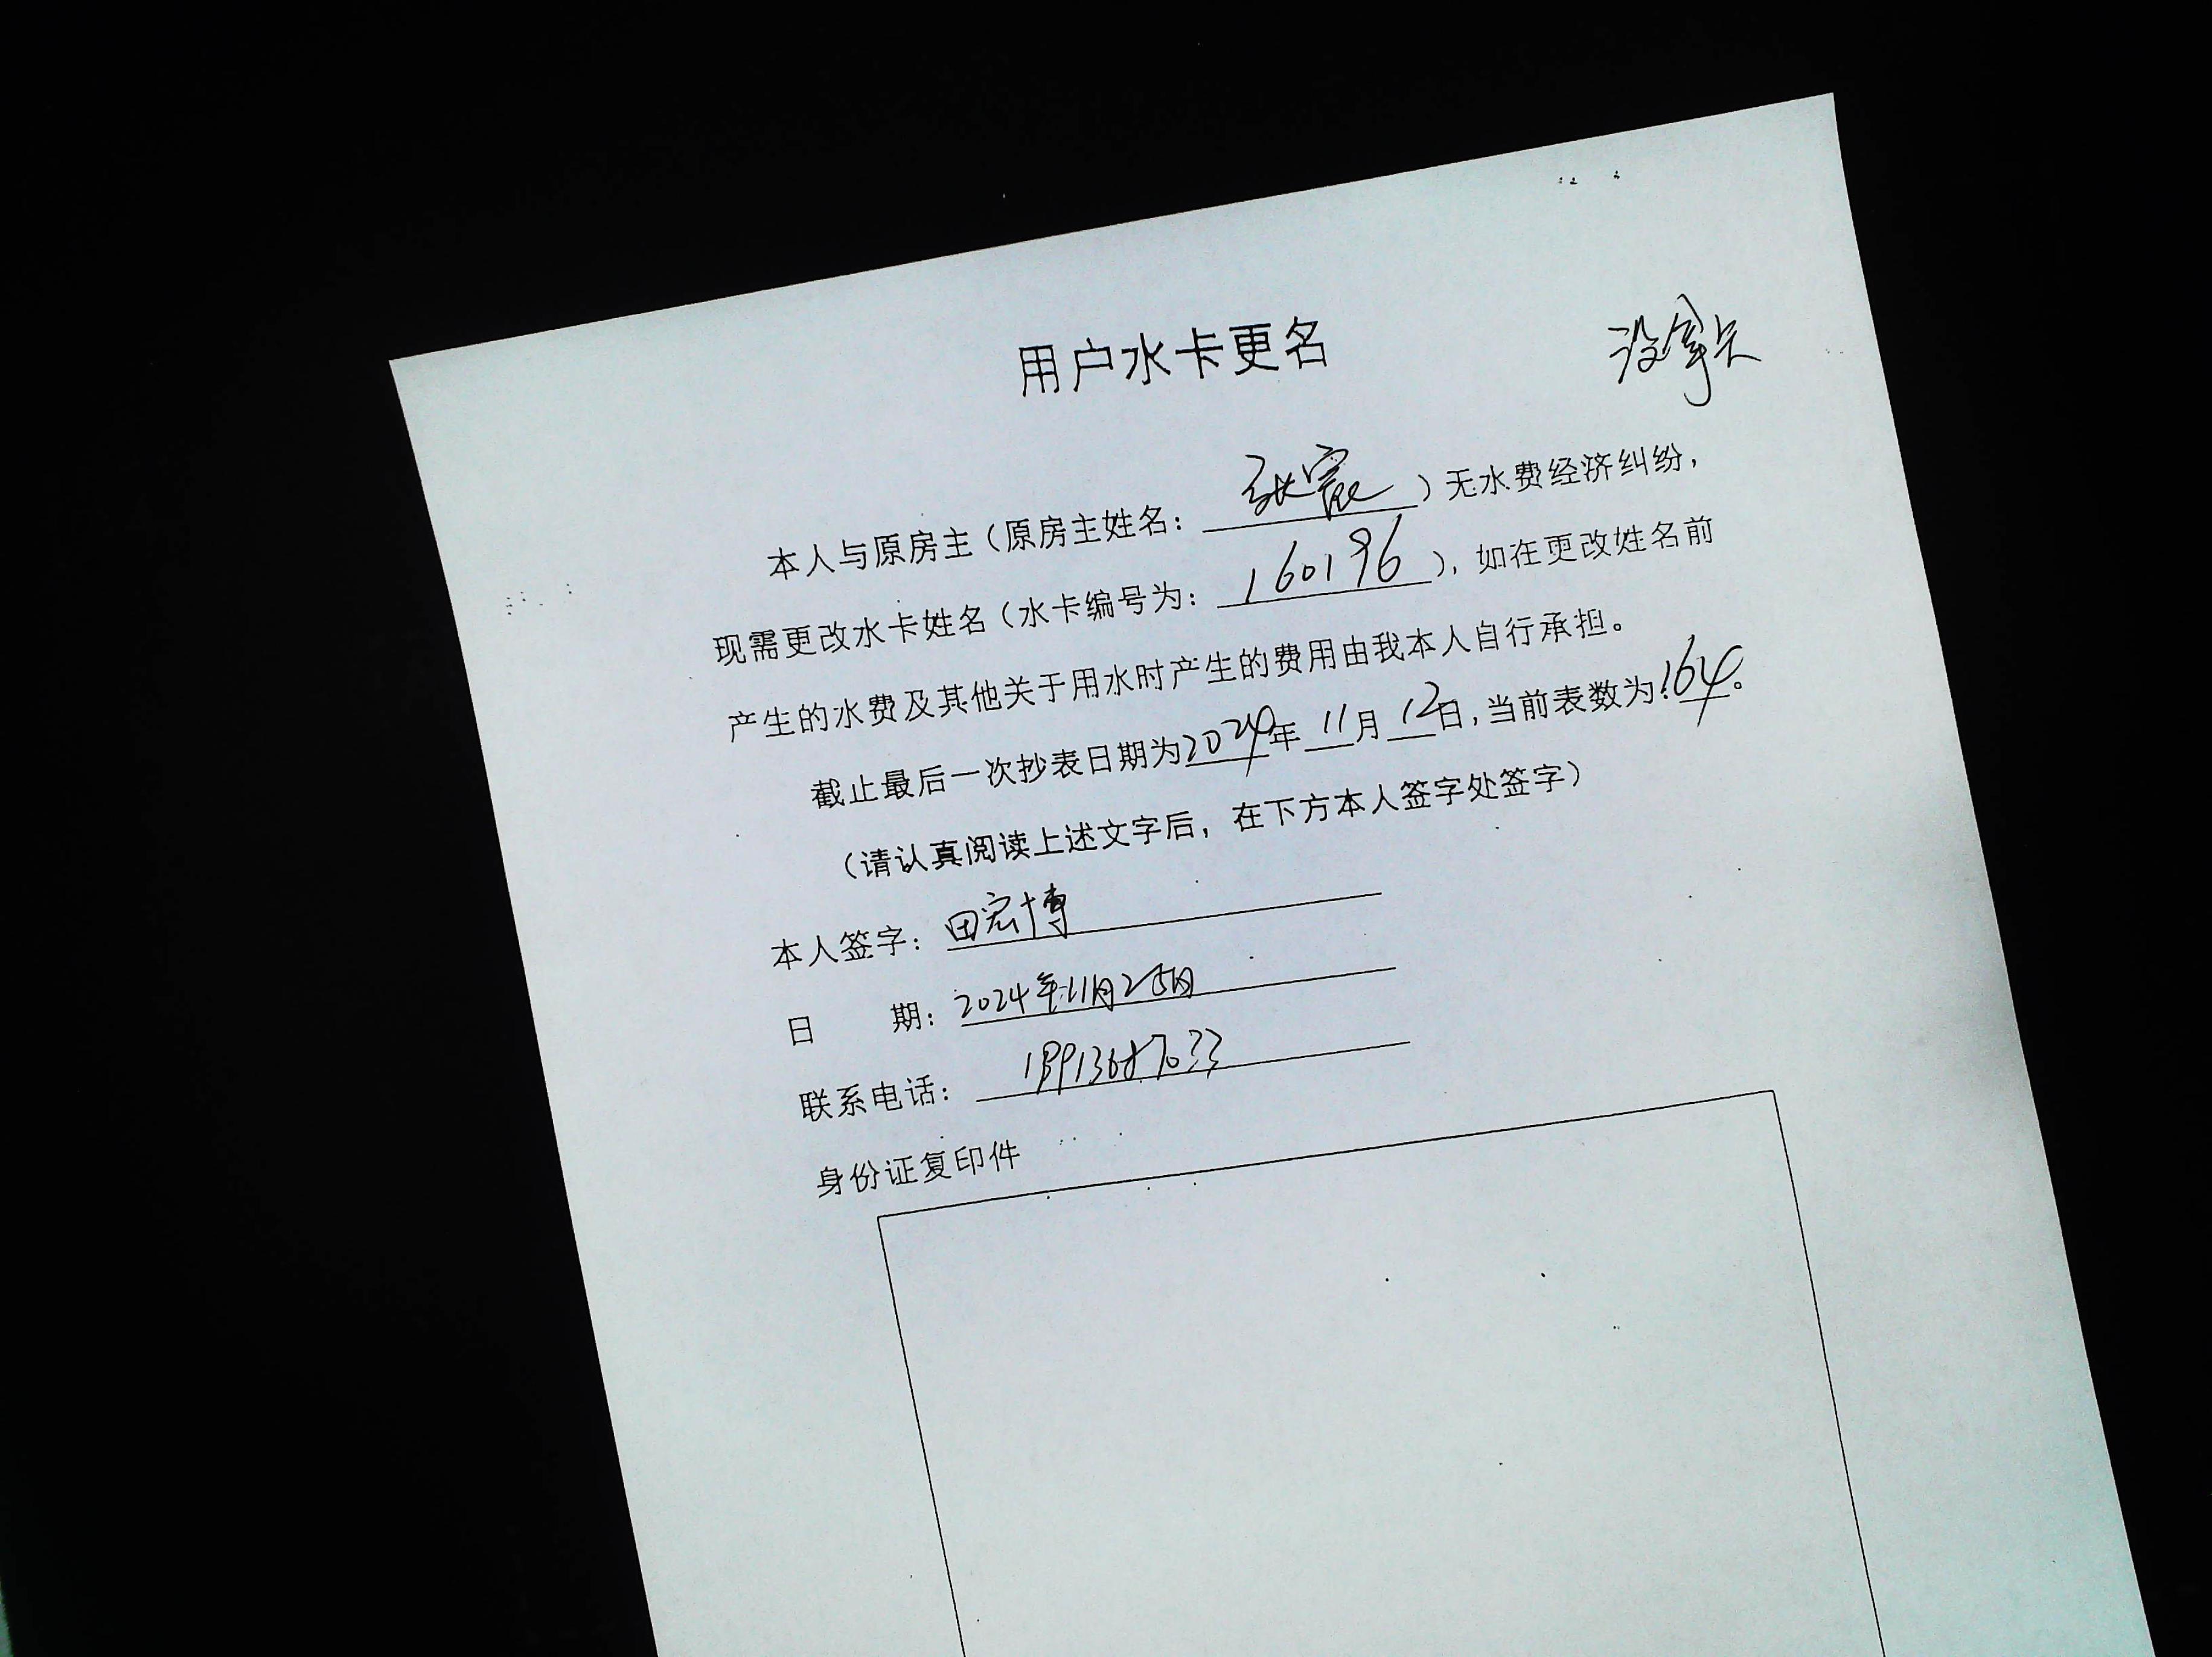 用户水卡更名
没拿卡
本人与原房主（原房主姓名：张宸）无水费经济纠纷，
现需更改水卡姓名（水卡编号为：160196），如在更改姓名前
产生的水费及其他关于用水时产生的费用由我本人自行承担。
截止最后一次抄表日期为2024年11月12日，当前表数为164。
（请认真阅读上述文字后，在下方本人签字处签字）
本人签字：田宏博
日 期：2024年11月25日
联系电话：
身份证复印件